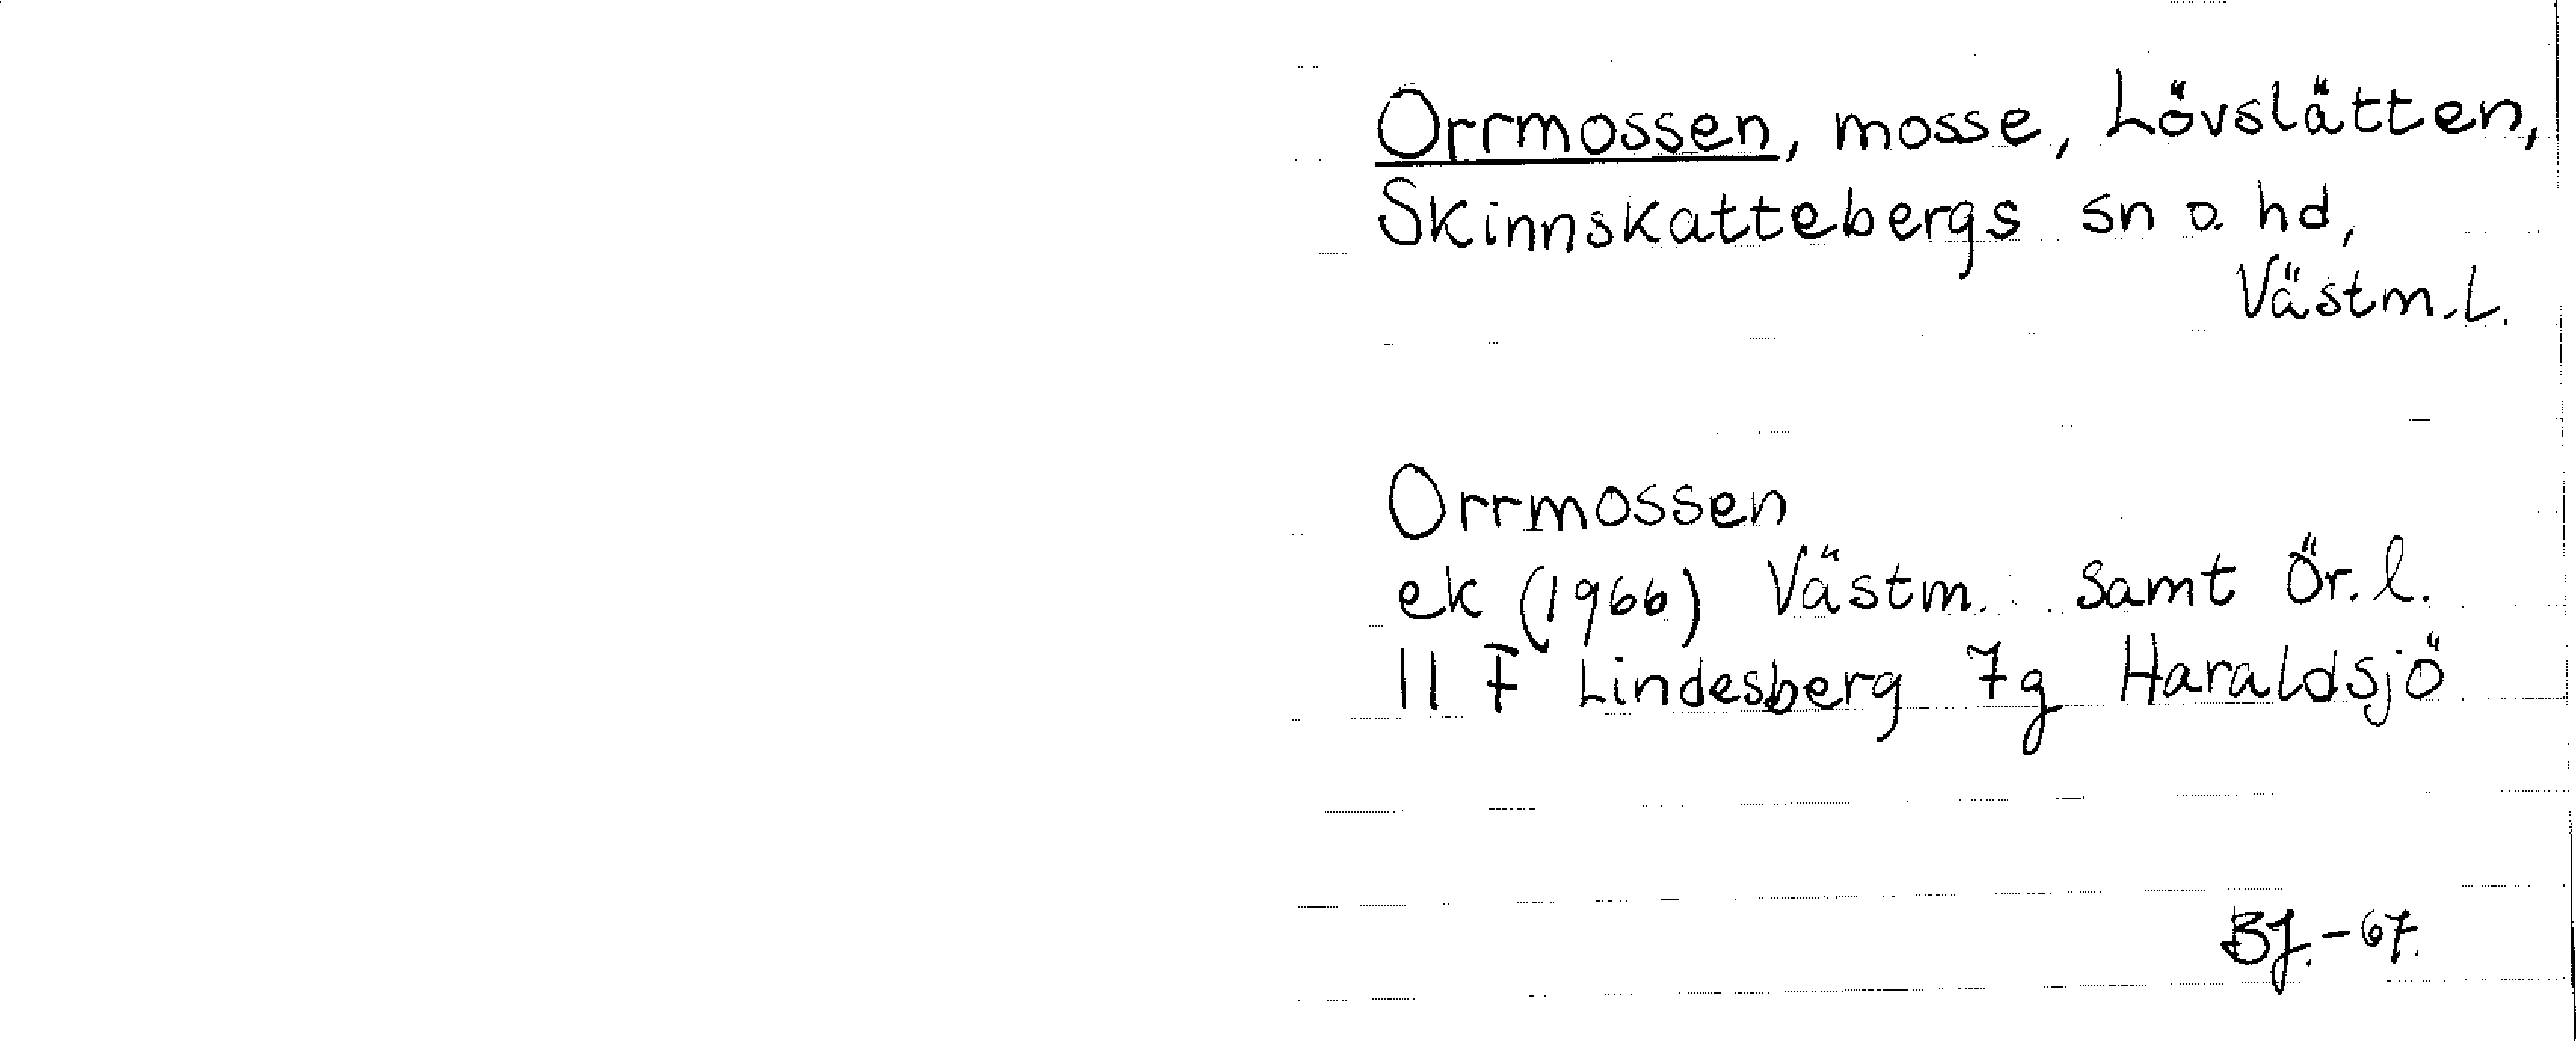 Orrmossen, mosse, Lövslätten,
Skinnskattebergs sn o. hd,
Västm. L.
Orrmossen
ek (1966) Västm. samt Ör. l.
11 F Lindesberg 7g Haraldsjö
BJ. -67.